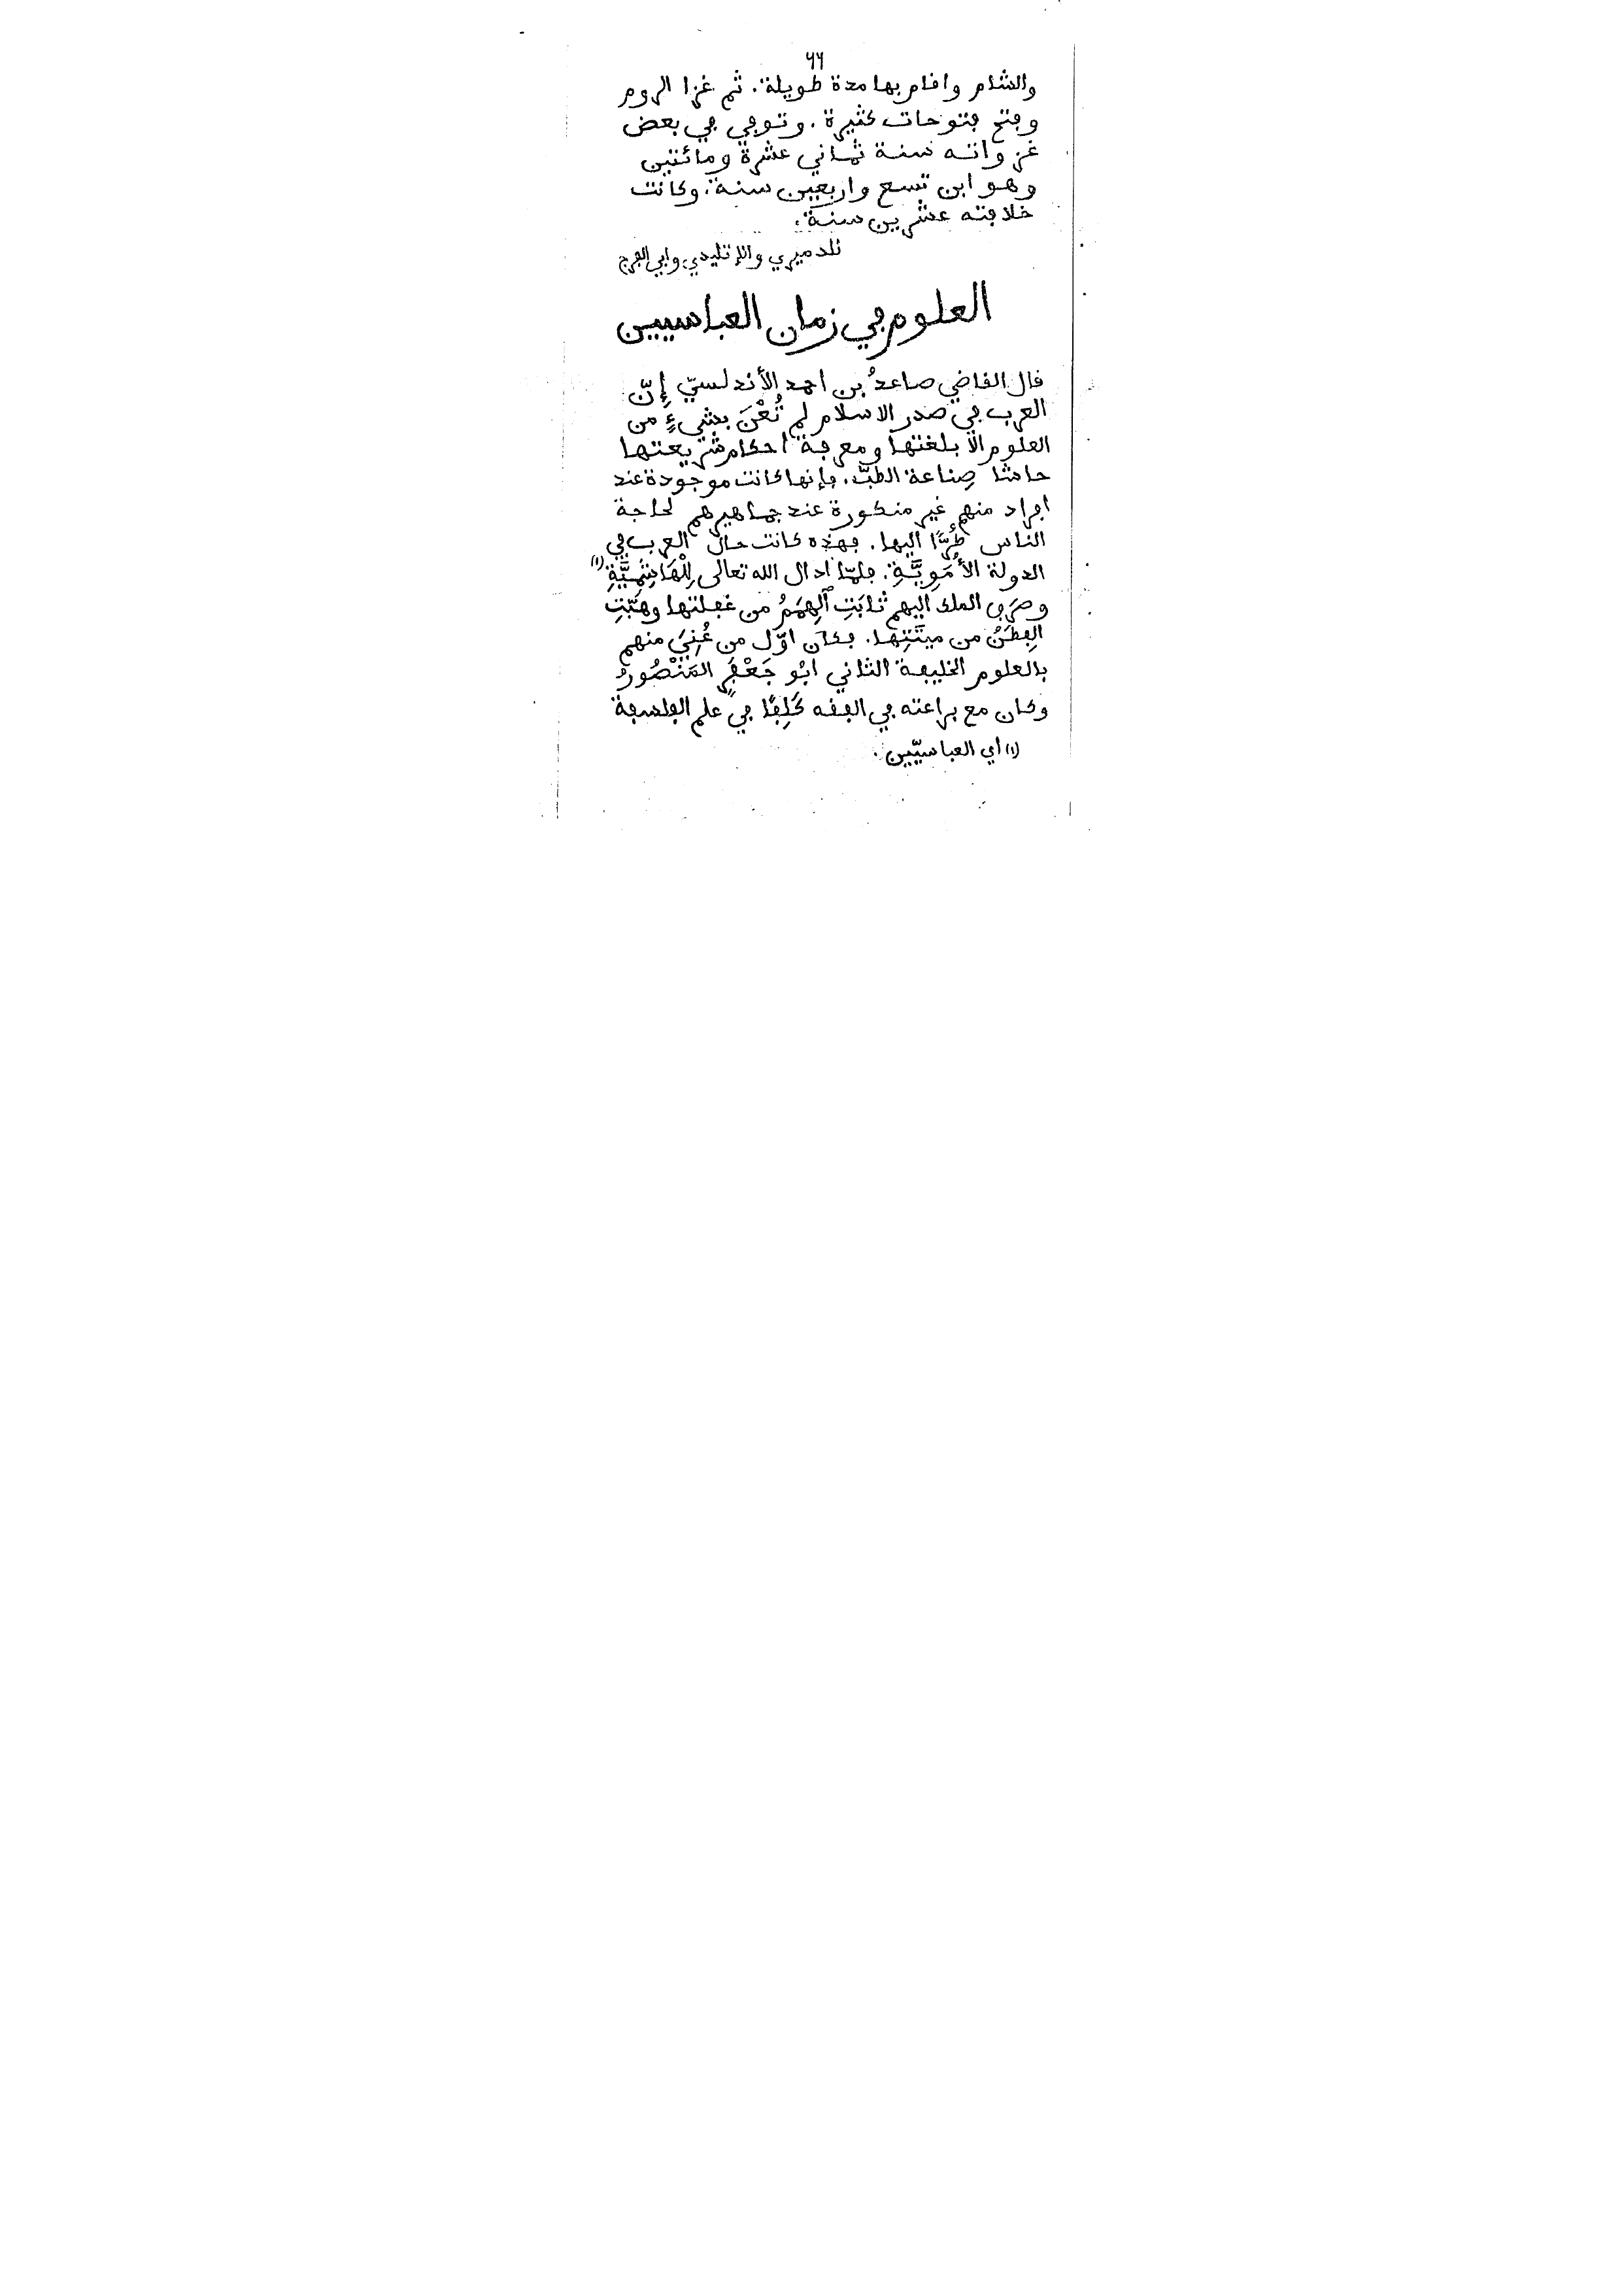 ٦٦
والشام واقام بها مدة طويلة. ثم غزا الروم
وفتح فتوحات كثيرة. وتوفي في بعض
غزواته سنة ثماني عشرة ومائتين
وهو ابن تسع واربعين سنة. وكانت
خلافته عشرين سنة.
للدميري والإتليدي وابي الفرج
العلوم في زمان العباسيين
قال القاضي صاعدُ بن احمد الأندلسيّ إِنّ
العرب في صدر الاسلام لم تُعْنَ بشيءٍ من
العلوم الا بلغتها ومعرفة احكام شريعتها
حاشا صِناعة الطبّ. فإنها كانت موجودة عند
افراد منهم غير منكورة عند جماهيرهم لحاجة
الناس طُرًّا اليها. فهذه كانت حال العرب في
الدولة الأُمَوِيَّةِ. فلمّا ادال الله تعالى لِلْهَاشِمِيَّةِ (١)
وصَرَف الملك اليهم ثابَتِ ٱلهِمَمُ من غفلتها وهَبّتِ
الفِطَنُ من ميتَتِها. فكان اوّل من عُنِيَ منهم
بالعلوم الخليفة الثاني ابُو جَعْفَرٍ المَنْصُورُ
وكان مع براعته في الفقه كَلِفًا في علم الفلسفة
(١) اي العباسيّين.